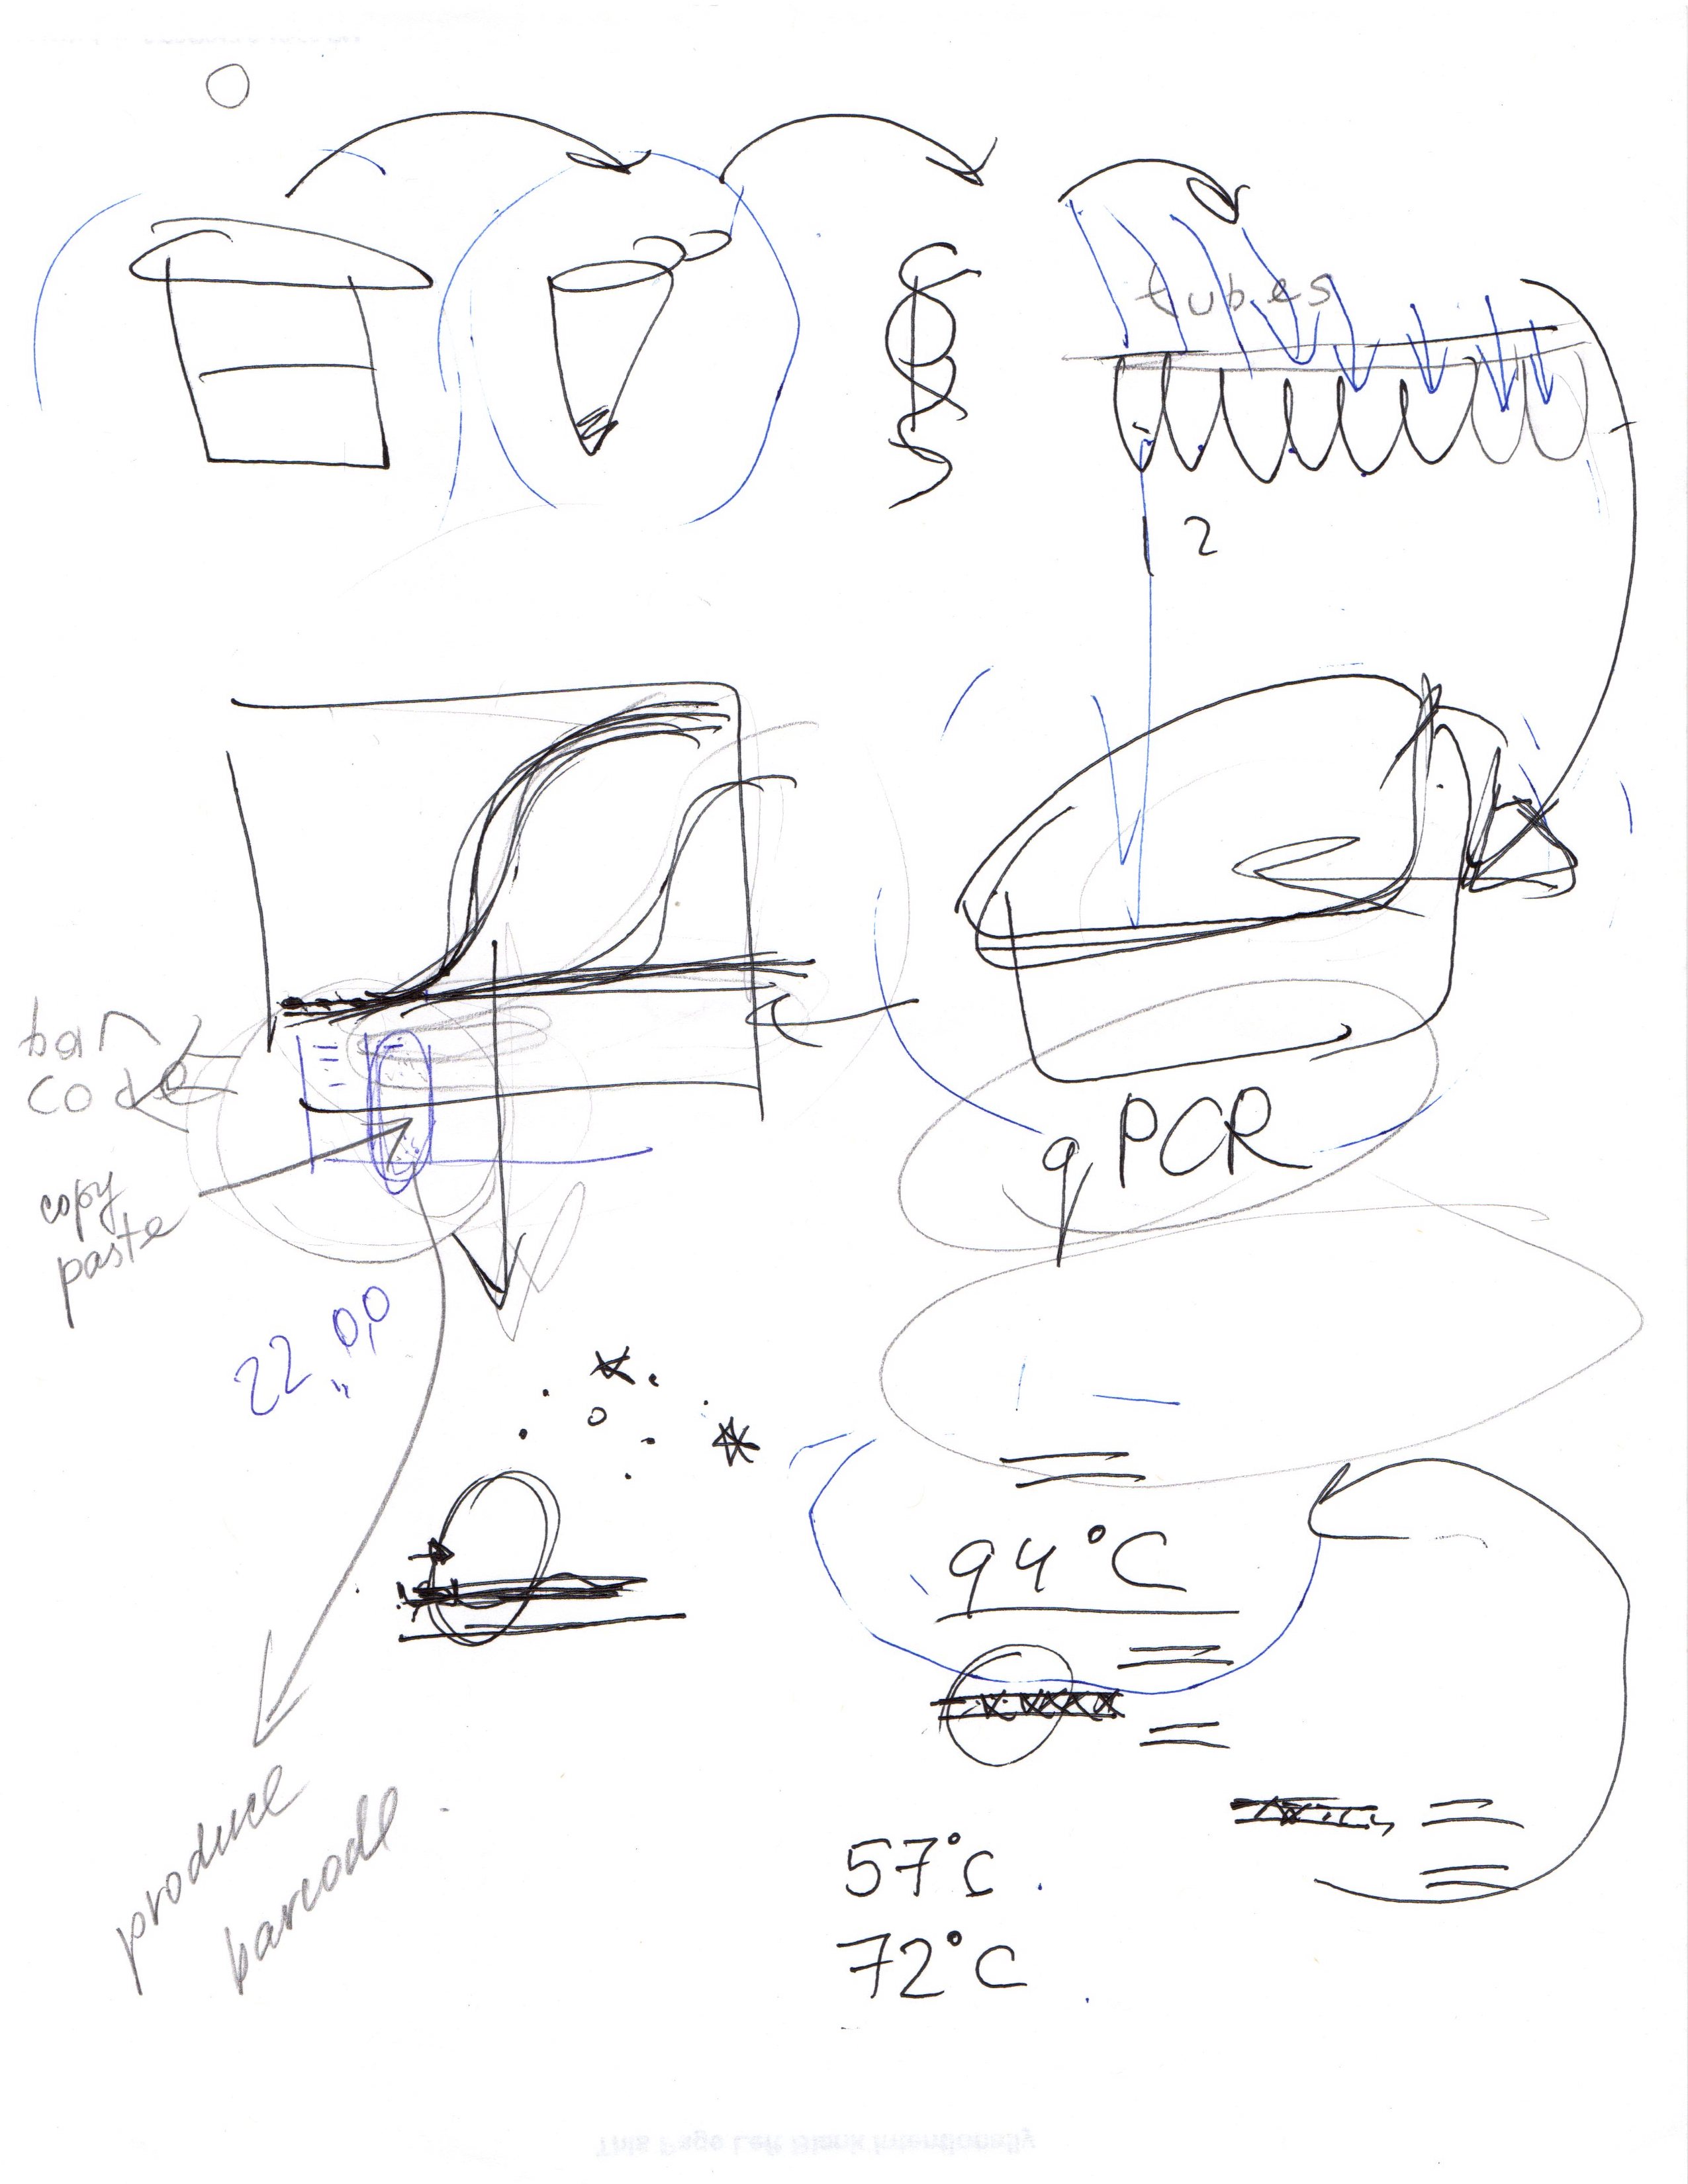 tubes
1 2
bar
code
qPCR
copy
paste
22,, 0,0
94°C
57°C
72°C
produce
barcode
This Page Left Blank Intentionally